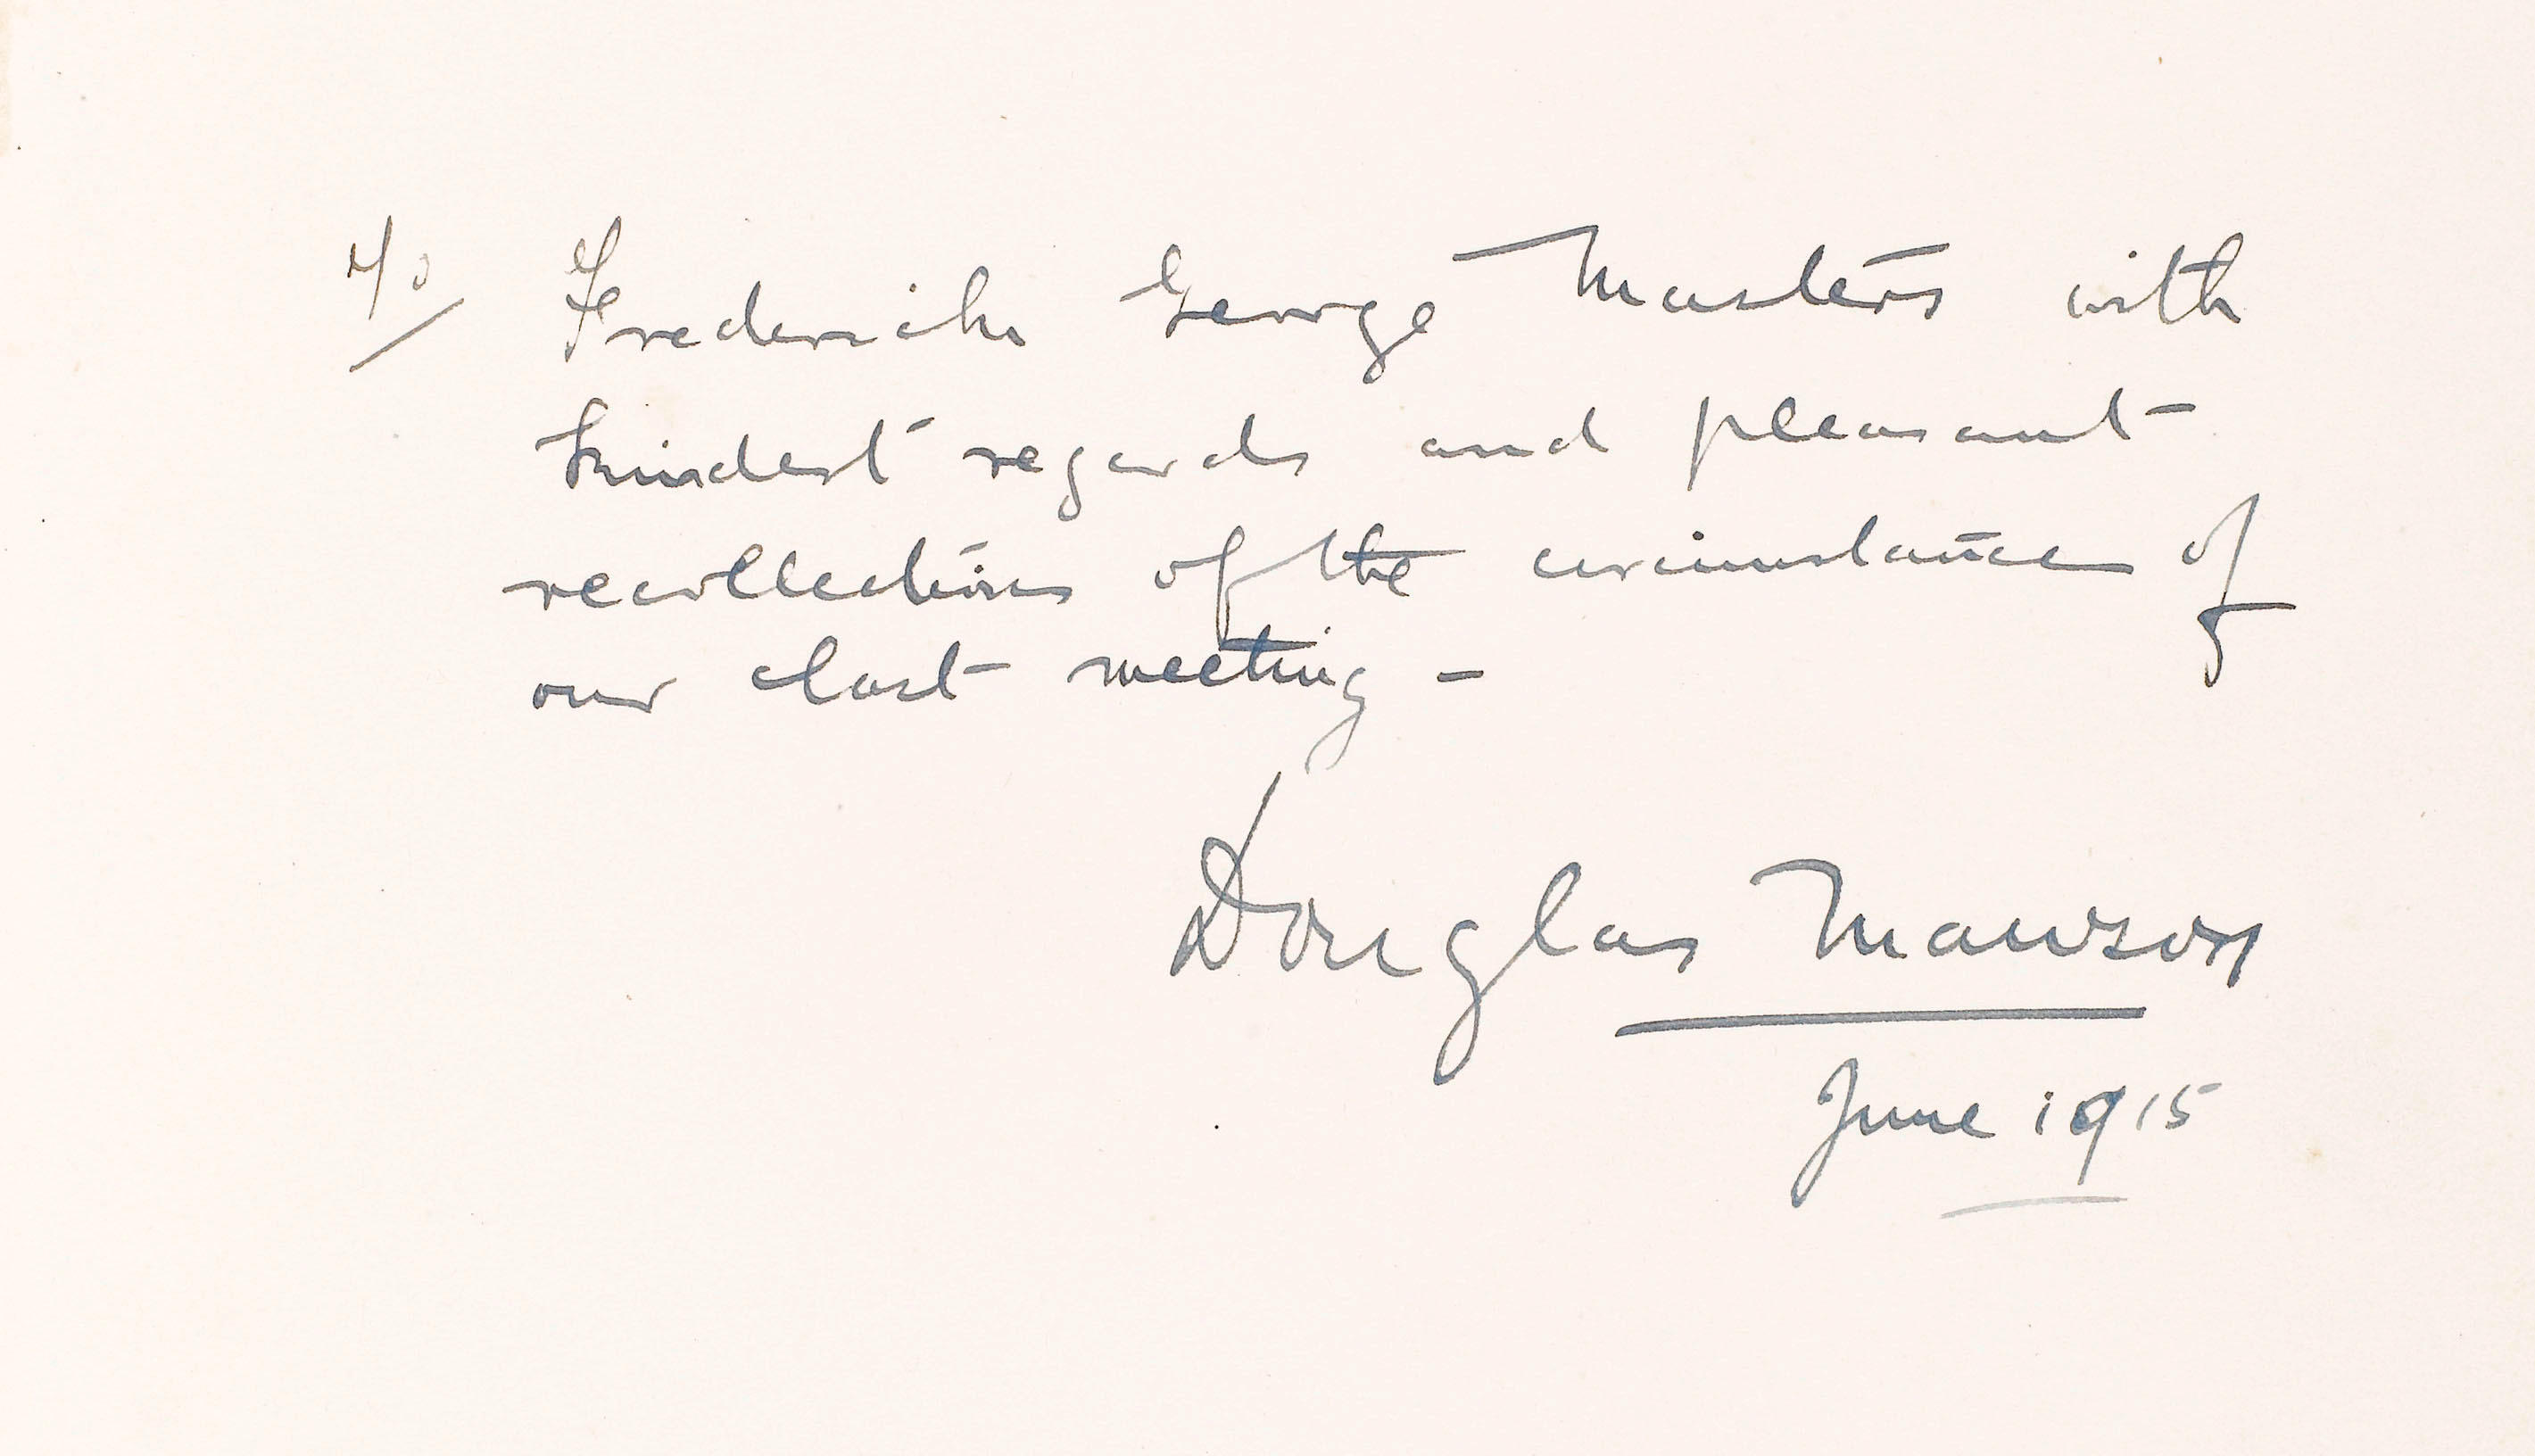 To Frederick George Masters with
kindest regards and pleasant
recollections of the circumstances of
our last meeting –
Douglas Mawson
June 1915